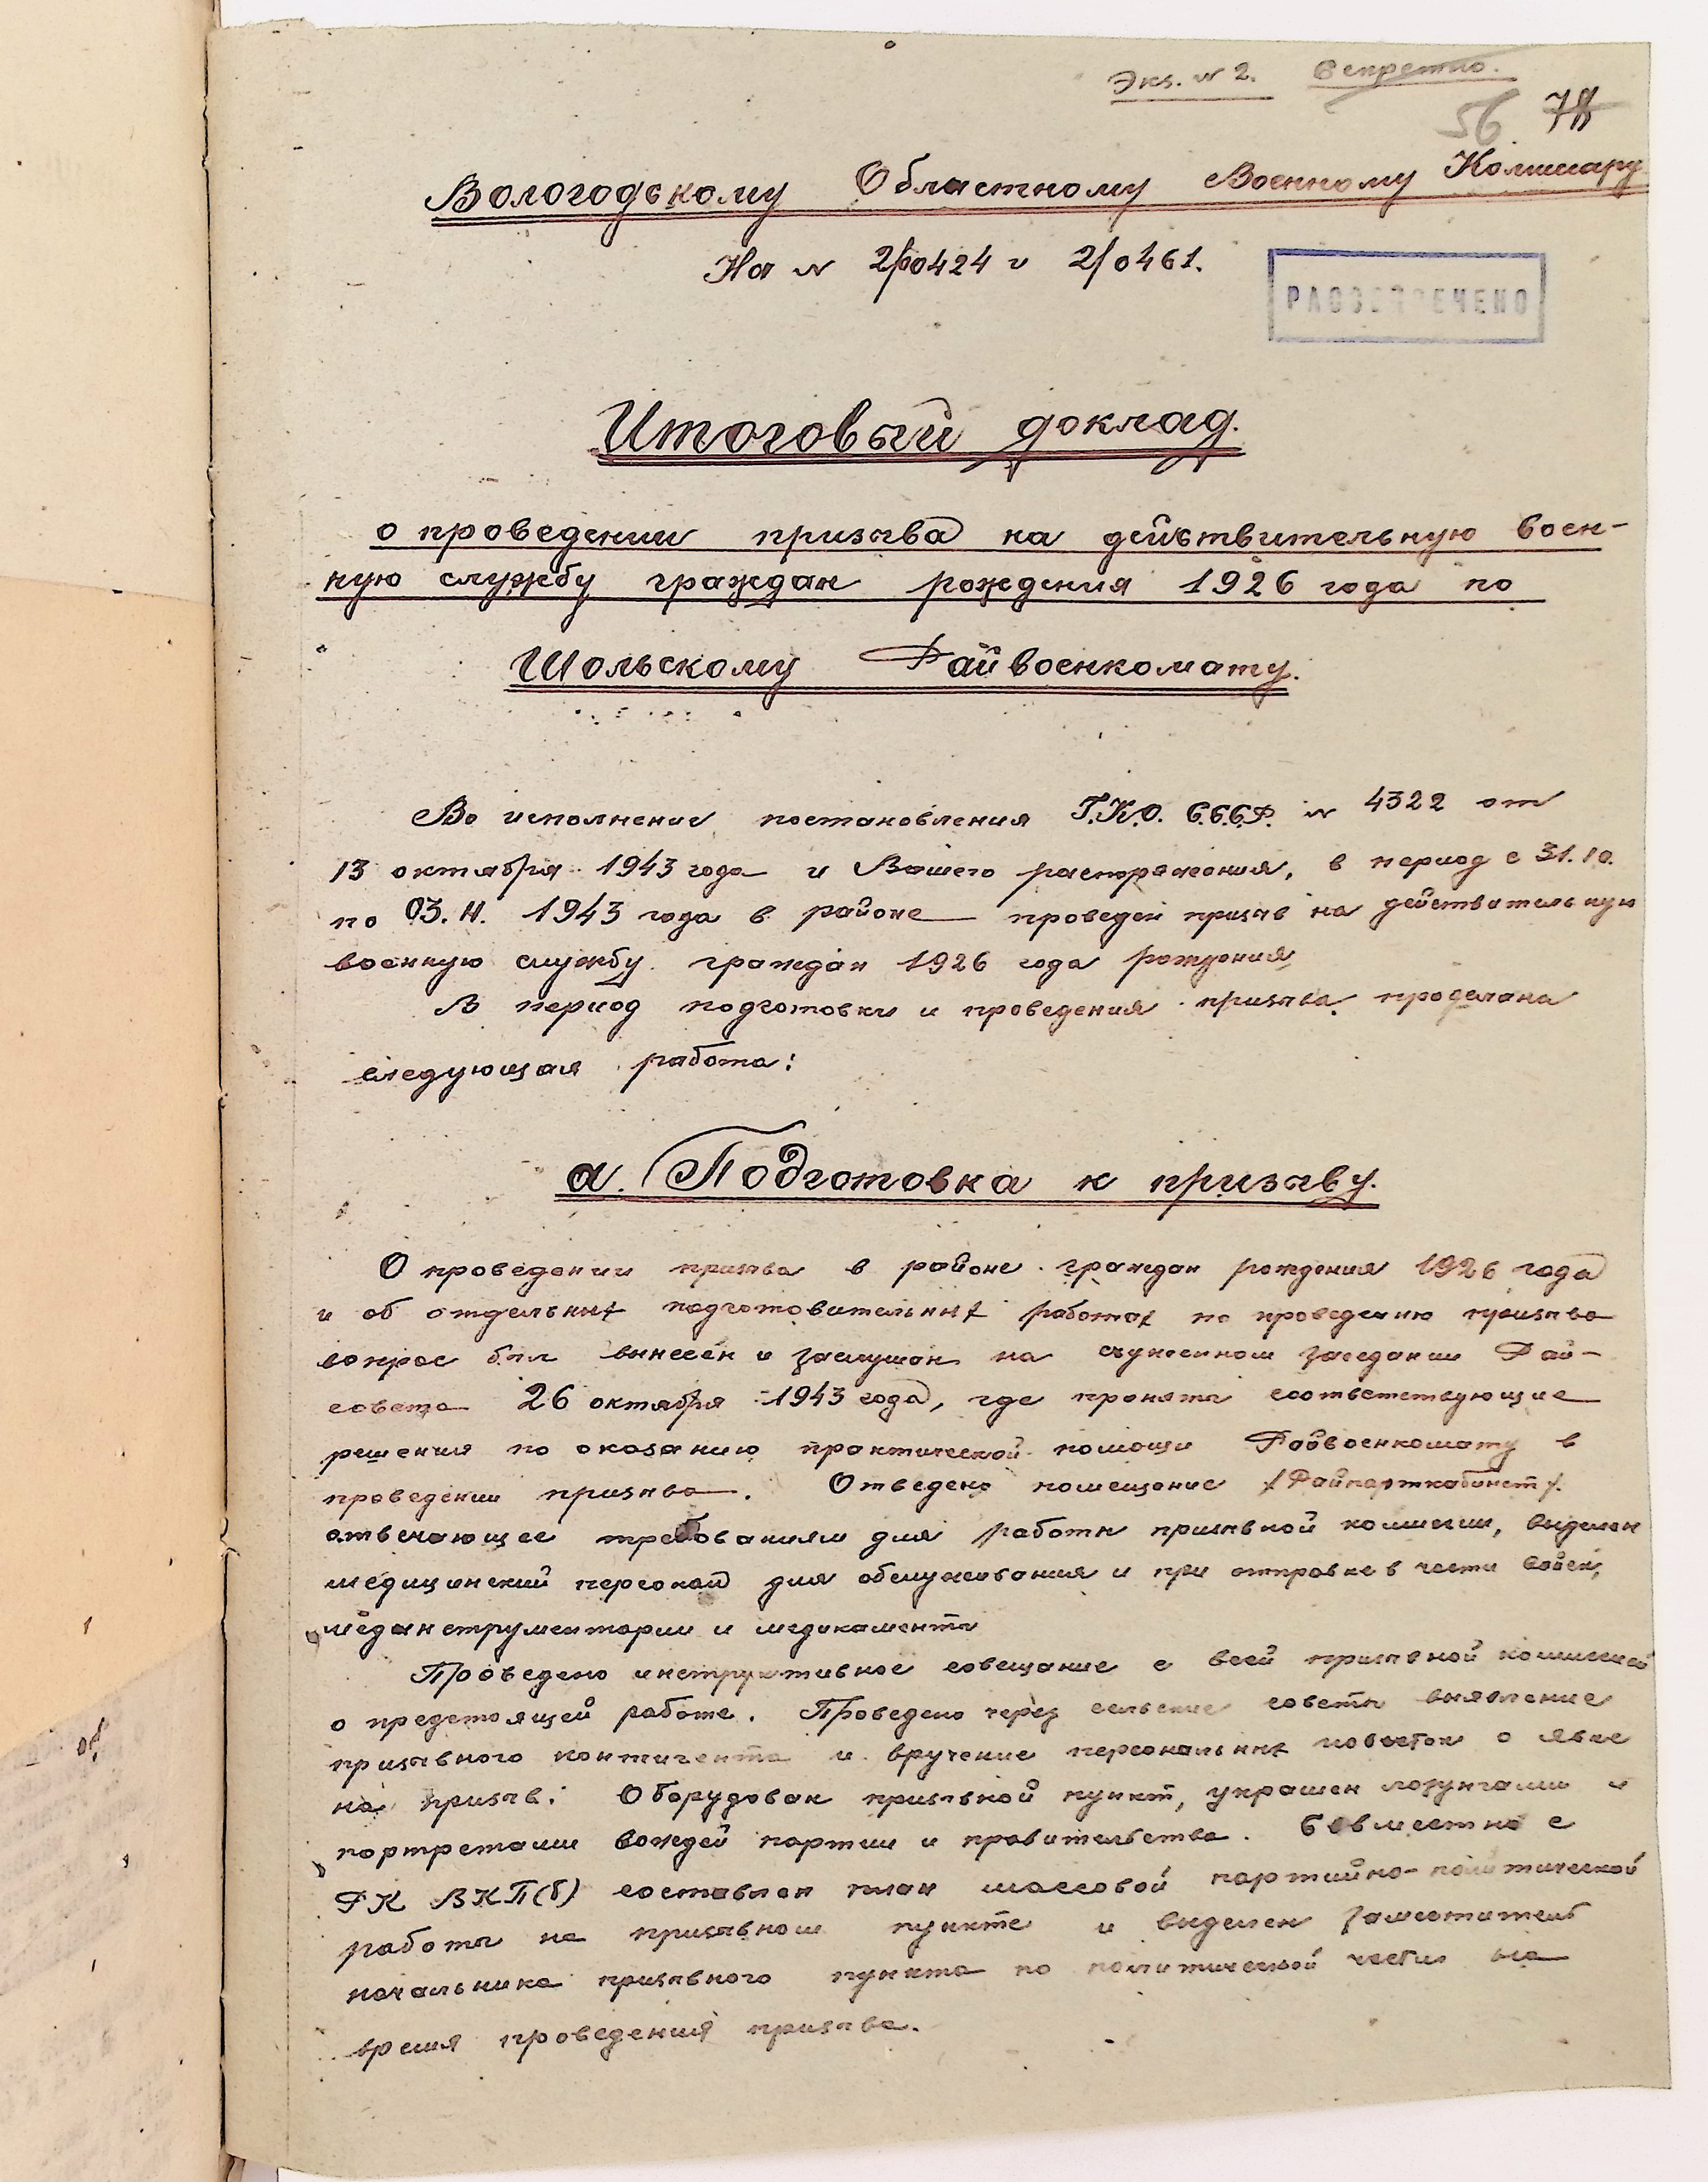 Экз. № 2. Секретно.
56 78
Вологодскому Областному Военному Комиссару
На № 2/00424 и 2/0461.
РАССЕКРЕЧЕНО
Итоговый доклад.
о проведении призыва на действительную воен-
ную службу граждан рождения 1926 года по
Шольскому Райвоенкомату.
Во исполнение постановления Г.К.О. С.С.С.Р. № 4322 от
13 октября 1943 года и Вашего распоряжения, в период с 31.10.
по 03.11. 1943 года в районе проведен призыв на действительную
военную службу граждан 1926 года рождения
В период подготовки и проведения призыва проделана
следующая работа:
а. Подготовка к призыву.
О проведении призыва в районе граждан рождения 1926 года
и об отдельных подготовительных работах по проведению призыва
вопрос был вынесен и заслушан на суженном заседании Рай-
совета 26 октября 1943 года, где приняты соответствующие
решения по оказанию практической помощи Райвоенкомату в
проведении призыва. Отведено помещение /Райпарткабинет/.
отвечающее требованиям для работы призывной комиссии, выделен
медицинский персонал для обслуживания и при отправке в части войск,
мединструментарии и медикаменты
Проведено инструктивное совещание с всей призывной комиссией
о предстоящей работе. Проведено через сельские советы выявление
призывного контингента и вручение персональных повесток о явке
на призыв. Оборудован призывной пункт, украшен лозунгами и
портретами вождей партии и правительства. Совместно с
РК ВКП(б) составлен план массовой партийно-политической
работы на призывном пункте и выделен заместитель
начальника призывного пункта по политической части на
время проведения призыва.